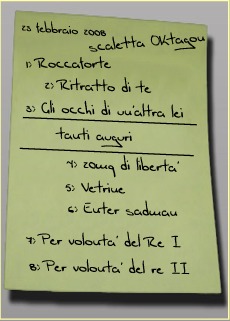 23 febbraio 2008
scaletta Oktagon
1) Roccaforte
2) Ritratto di te
3) Gli occhi di un'altra lei
tanti auguri
4) 20mq di liberta'
5) Vetrine
6) Enter sadman
7) Per volonta' del Re I
8) Per volonta' del re II